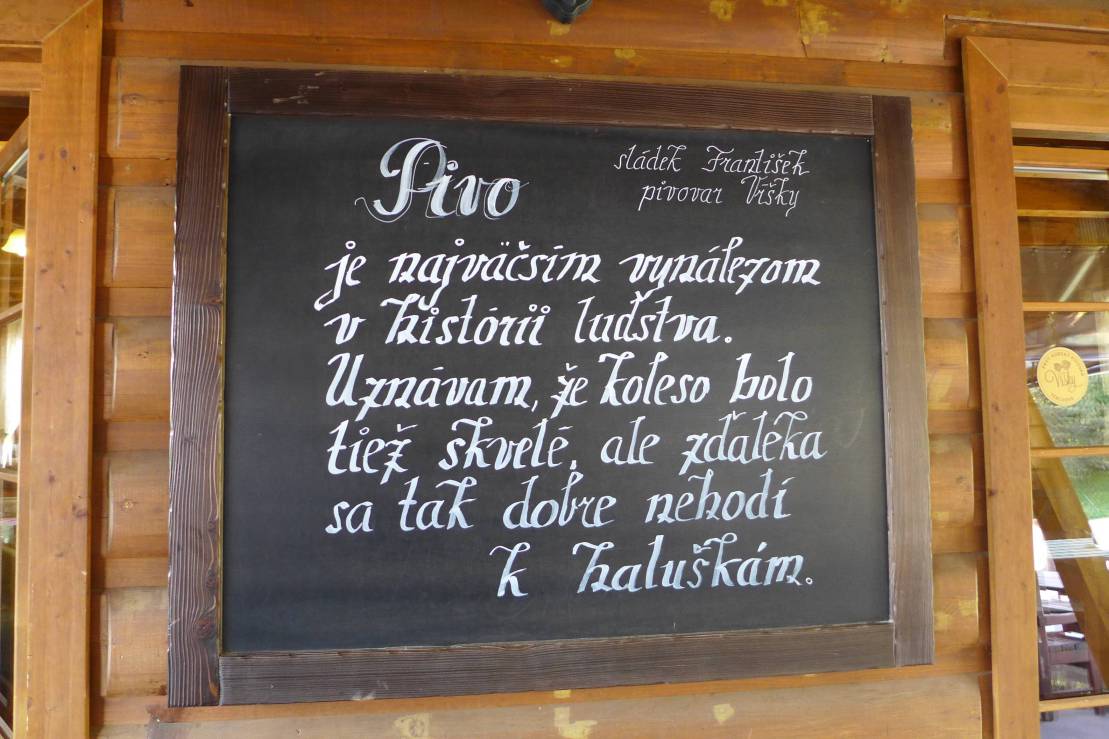 Pivo
sládek František
pivovar Vŕšky
je najväčsím vynálezom
v histórii ludstva.
Uznávam, že koleso bolo
tiež skvelé, ale zďaleka
sa tak dobre nehodí
k haluškám.
Vŕšky